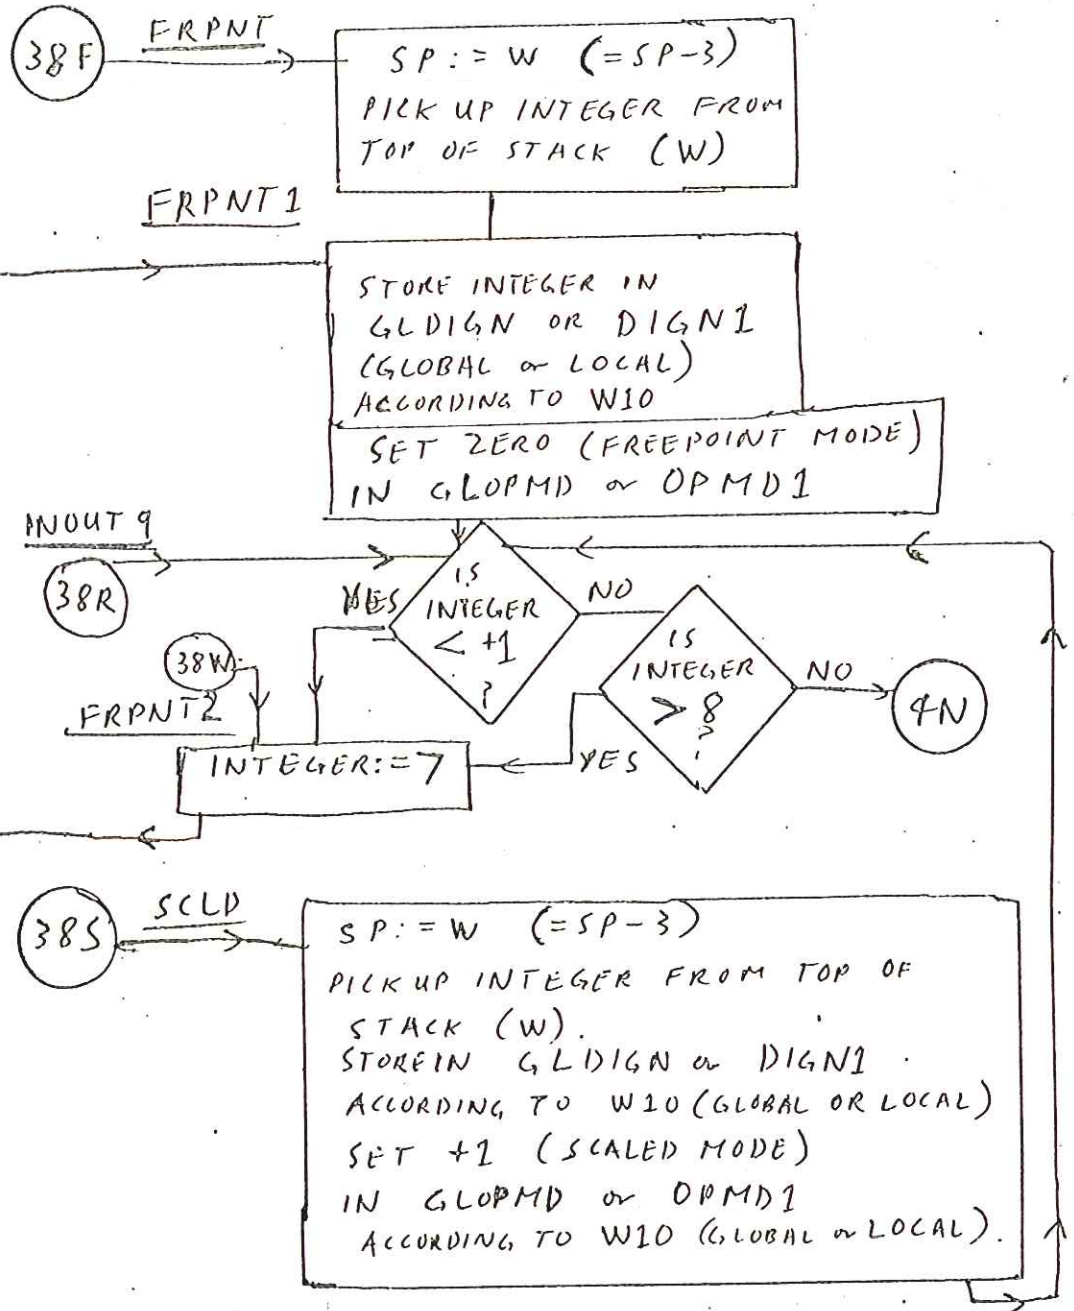 38F
FRPNT
SP:=W (=SP-3)
PICK UP INTEGER FROM
TOP OF STACK (W)
FRPNT1
STORE INTEGER IN
GLDIGN OR DIGN1
(GLOBAL or LOCAL)
ACCORDING TO W10
SET ZERO (FREEPOINT MODE)
IN GLOPMD or OPMD1
INOUT9
38R
IS
INTEGER
< +1
?
YES
NO
IS
INTEGER
> 8
?
NO
4N
YES
38W
FRPNT2
INTEGER:=7
38S
SCLD
SP:=W (=SP-3)
PICK UP INTEGER FROM TOP OF
STACK (W).
STORE IN GLDIGN or DIGN1
ACCORDING TO W10 (GLOBAL OR LOCAL)
SET +1 (SCALED MODE)
IN GLOPMD or OPMD1
ACCORDING TO W10 (GLOBAL or LOCAL).